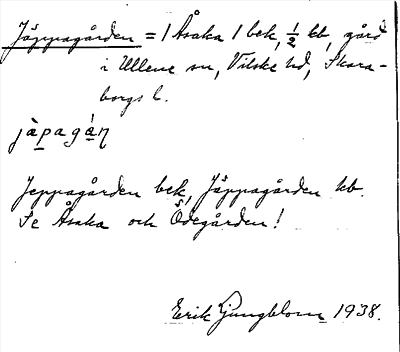 Jäppagården = 1 Åsaka 1 bek, ½ kb, gård
i Ullene sn, Vilske hd, Skara-
borgs l.
jàpagán
Jeppagården bek, Jäppagården kb.
Se Åsaka och Ödegården!
Erik Ljungblom 1938.